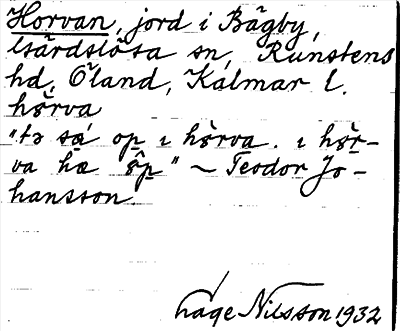 Horvan, jord i Bägby,
Gärdslösa sn, Runstens
hd, Öland, Kalmar l.
hörva
"tə sá op ı hörva. ı hör-
va hæ ŝp" ~ Teodor Jo-
hansson.
Åage Nilsson 1932